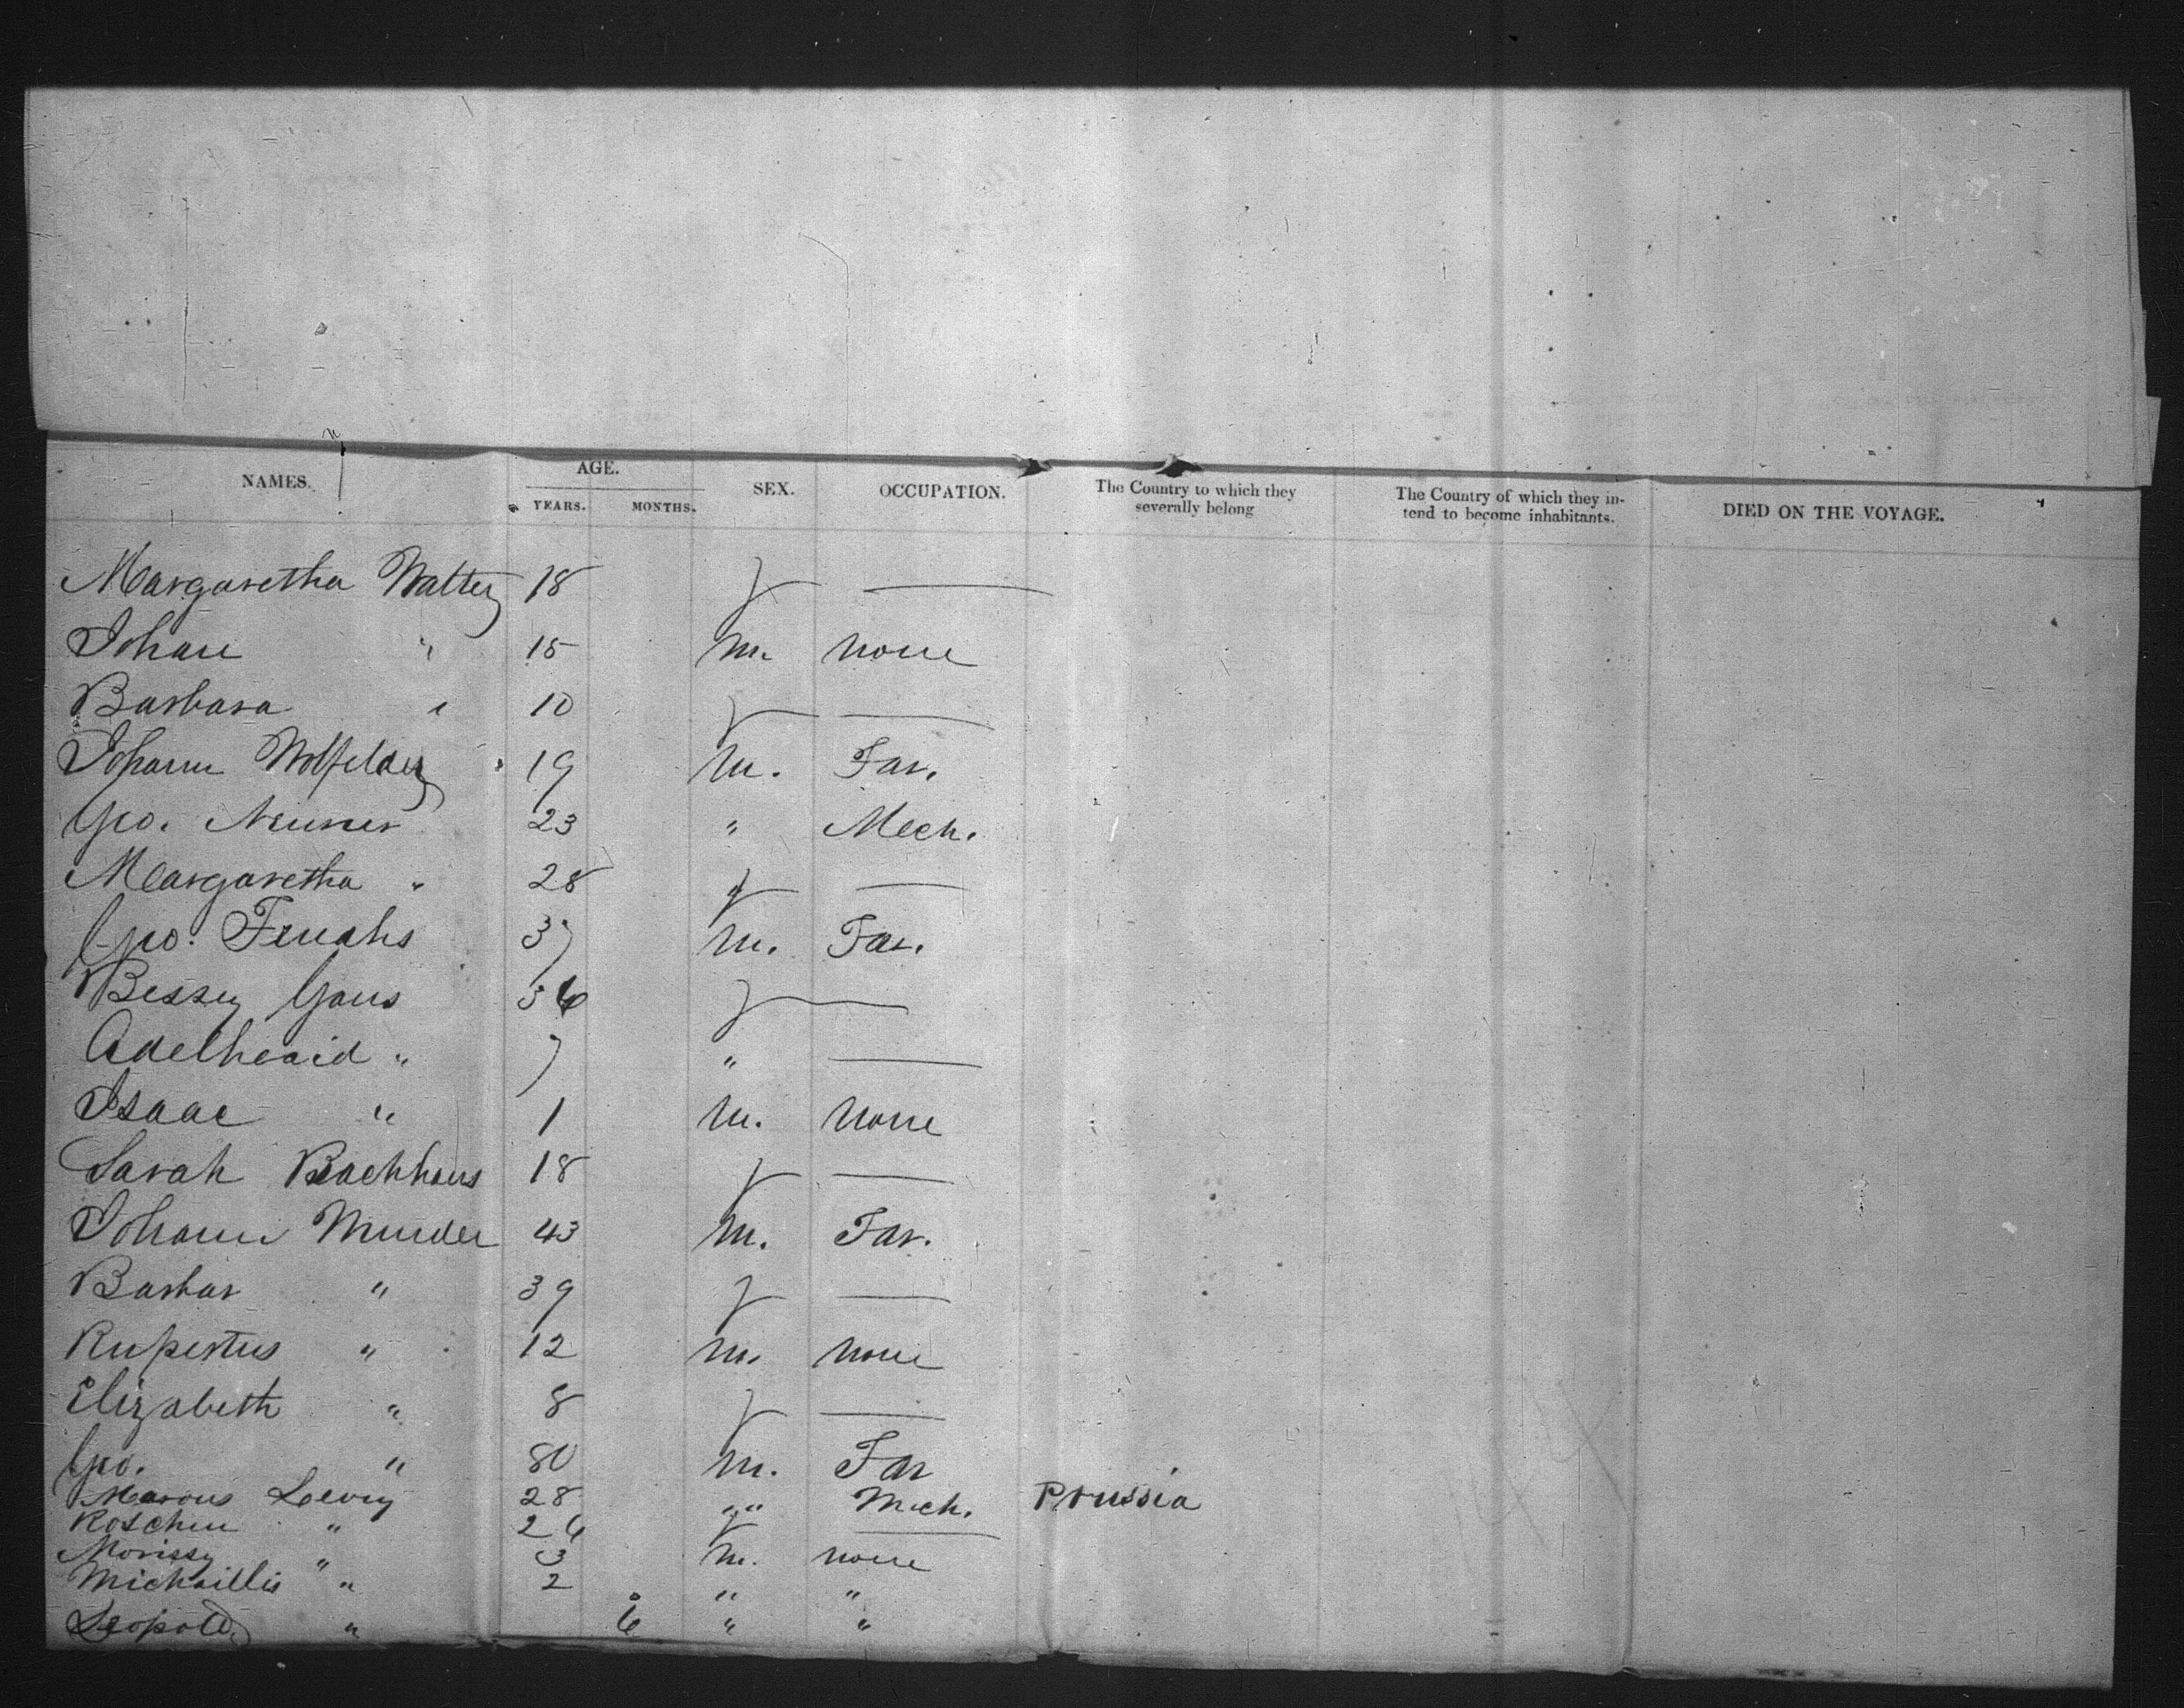 NAMES. AGE. SEX. OCCUPATION. The Country to which they severally belong The Country of which they intend to become inhabitants. DIED ON THE VOYAGE.
YEARS. MONTHS.
Margaretha Walter 18 f —
Johann " 15 m none
Barbara " 10 f —
Johann Wolfelder 19 m. Far.
Geo. Neuner 23 " Mech.
Margaretha " 28 f —
Geo. 37 m. Far.
Bessey Gans 36 f —
Adelheaid " 7 " —
Isaac " 1 m. none
Sarah Bachhaus 18 f —
Johann Munder 43 m. Far.
Barbar " 39 f —
Rupertus " 12 m. none
Elizabeth " 8 f —
Geo. " 80 m. Far
Marcus Loevy 28 " Mech. Prussia
Roschen " 26 f —
Morissy " 3 m. none
Michaillis " 2 " "
Leopold " 6 " "